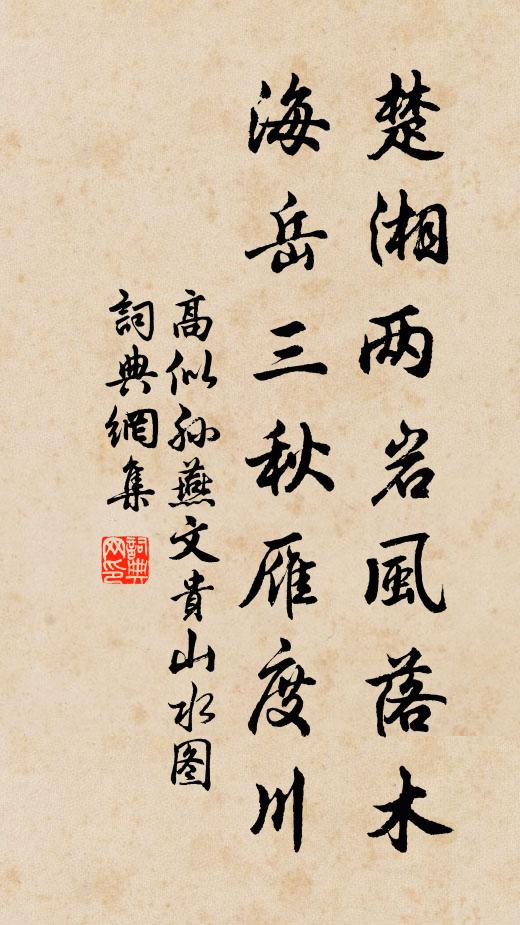 楚湘两岩風落木
海岳三秋雁度川
高似孙燕文貴山水图
詞典網集
詞典网印